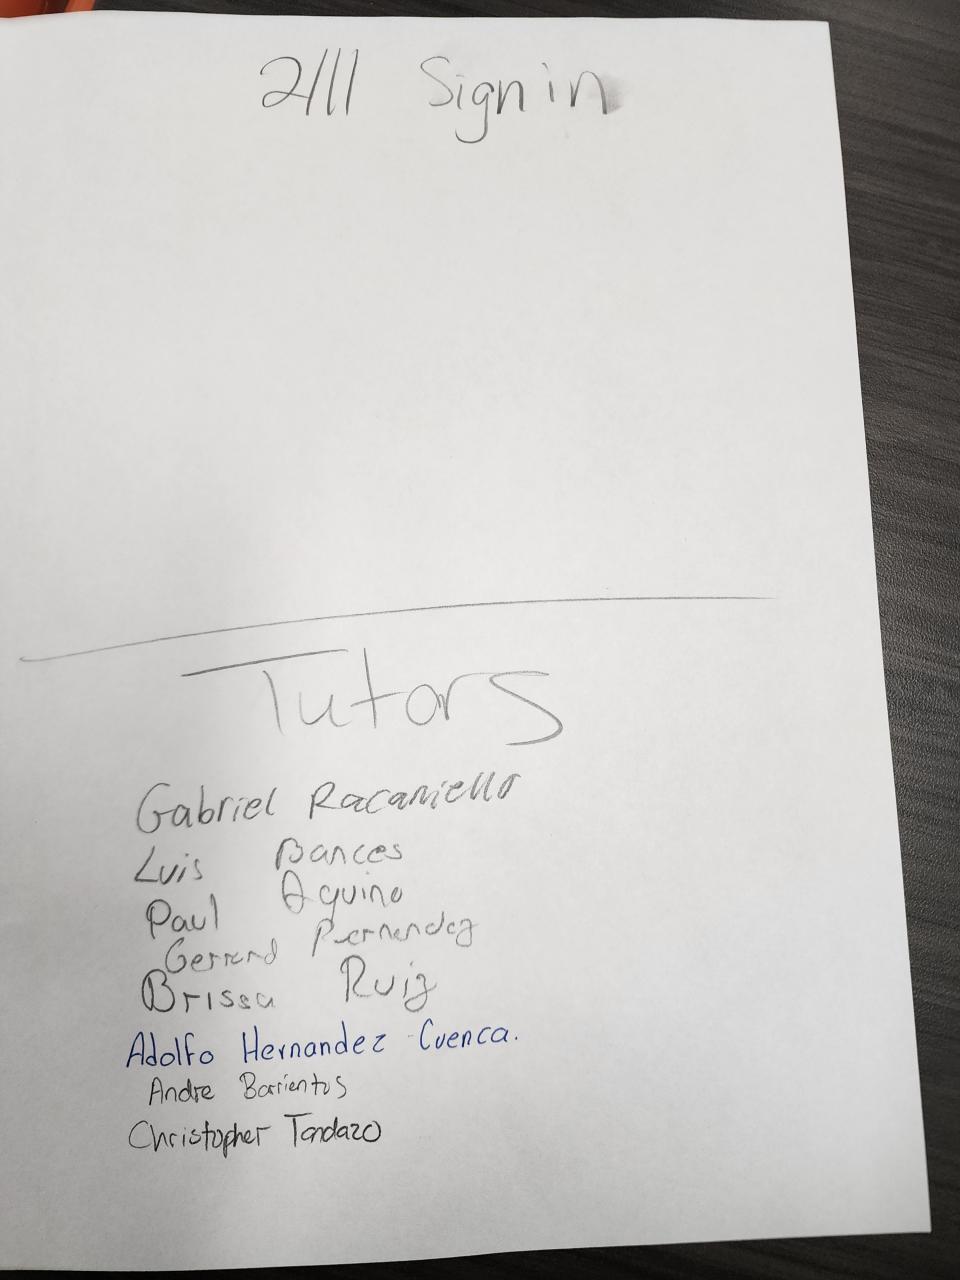 2/11 Sign in
Tutors
Gabriel Racaniello
Luis Bances
Paul Aquino
Gerrard Fernandez
Brissa Ruiz
Adolfo Hernandez-Cuenca.
Andre Barrientos
Christopher Tandazo